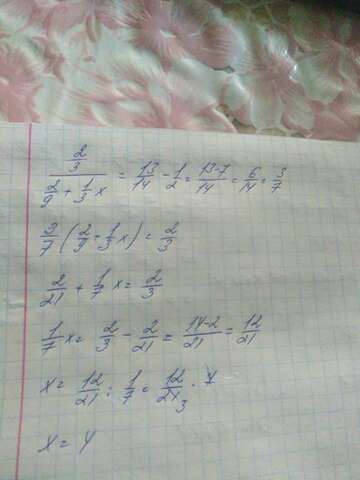 (2/3)/(2/9 + 1/3 x) = 13/14 - 1/2 = (13-7)/14 = 6/14 = 3/7
3/7 (2/9 + 1/3 x) = 2/3
2/21 + 1/7 x = 2/3
1/7 x = 2/3 - 2/21 = (14-2)/21 = 12/21
x = 12/21 : 1/7 = 12/21 3 · 7
x = 4